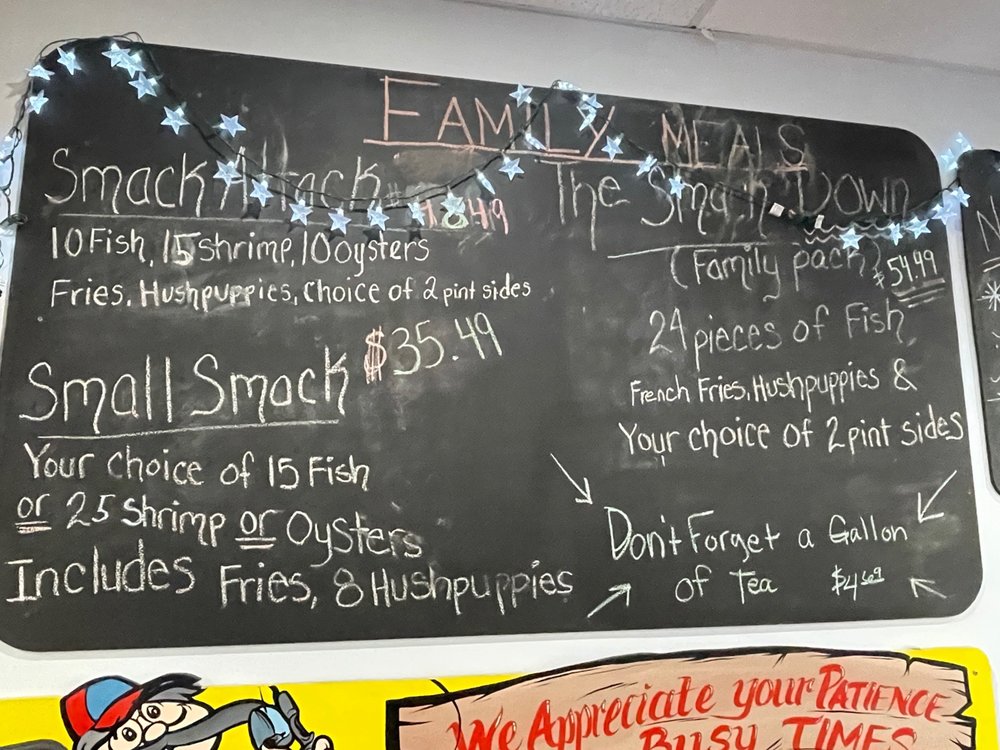 FAMILY MEALS
Smack Attack
10 Fish, 15 shrimp, 10 oysters
Fries, Hushpuppies, choice of 2 pint sides
Small Smack $35.49
Your choice of 15 Fish
or 25 Shrimp or Oysters
Includes Fries, 8 Hushpuppies
The Smack Down
(Family pack) $54.49
24 pieces of Fish
French Fries, Hushpuppies &
Your choice of 2 pint sides
Don't Forget a Gallon
of Tea $4.69
We Appreciate your PATIENCE
BUSY TIMES